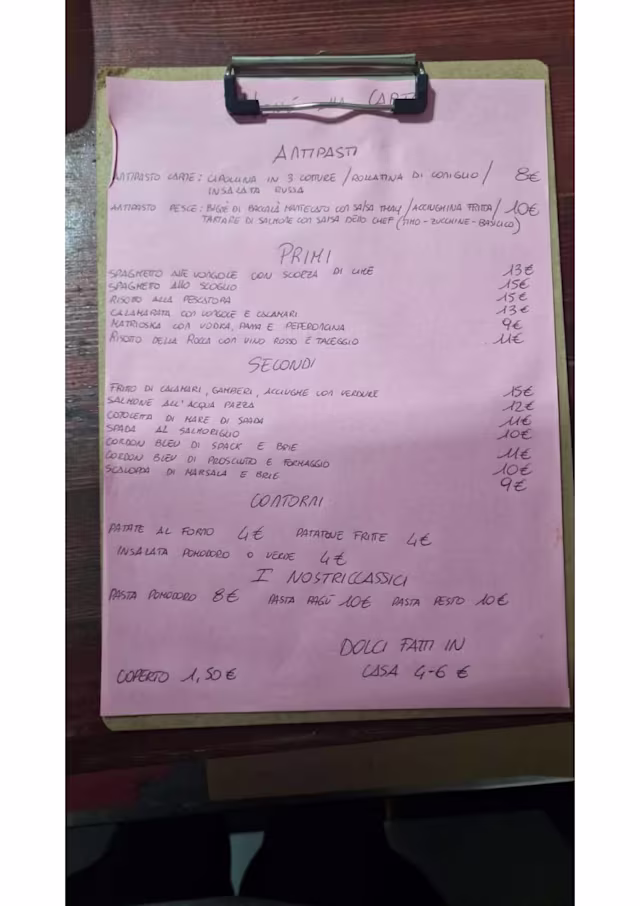 CARTA
ANTIPASTI
ANTIPASTO CARNE: CIPOLLINA IN 3 COTTURE / ROLLATINA DI CONIGLIO / 8€
INSALATA RUSSA
ANTIPASTO PESCE: BIGNÈ DI BACCALÀ MANTECATO CON SALSA THAI / ACCIUGHINA FRITTA / 10€
TARTARE DI SALMONE CON SALSA DELLO CHEF (TIMO - ZUCCHINE - BASILICO)
PRIMI
SPAGHETTO ALLE VONGOLE CON SCORZA DI LIME 13€
SPAGHETTO ALLO SCOGLIO 15€
RISOTTO ALLA PESCATORA 15€
CALAMARATA CON VONGOLE E CALAMARI 13€
MATRIOSKA CON VODKA, PANNA E PEPERONCINA 9€
RISOTTO DELLA ROCCA CON VINO ROSSO E TALEGGIO 11€
SECONDI
FRITTO DI CALAMARI, GAMBERI, ACCIUGHE CON VERDURE 15€
SALMONE ALL'ACQUA PAZZA 12€
COTOLETTA DI MARE DI SPADA 11€
SPADA AL SALMORIGLIO 10€
CORDON BLEU DI SPACK E BRIE 11€
CORDON BLEU DI PROSCIUTTO E FORMAGGIO 10€
SCALOPPA DI MARSALA E BRIE 9€
CONTORNI
PATATE AL FORNO 4€ PATATINE FRITTE 4€
INSALATA POMODORO O VERDE 4€
I NOSTRI CLASSICI
PASTA POMODORO 8€ PASTA RAGÙ 10€ PASTA PESTO 10€
DOLCI FATTI IN
COPERTO 1,50€ CASA 4-6 €